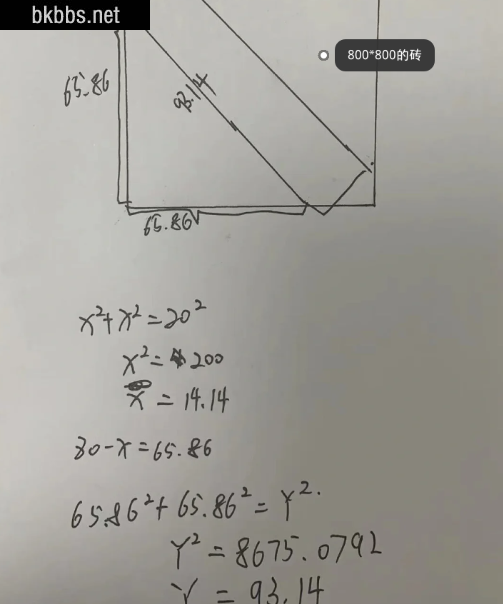 bkbbs.net
800*800的砖
65.86
93.14
65.86
x²+x²=20²
x²=200
x=14.14
80-x=65.86
65.86²+65.86²=Y².
Y²=8675.0792
Y=93.14